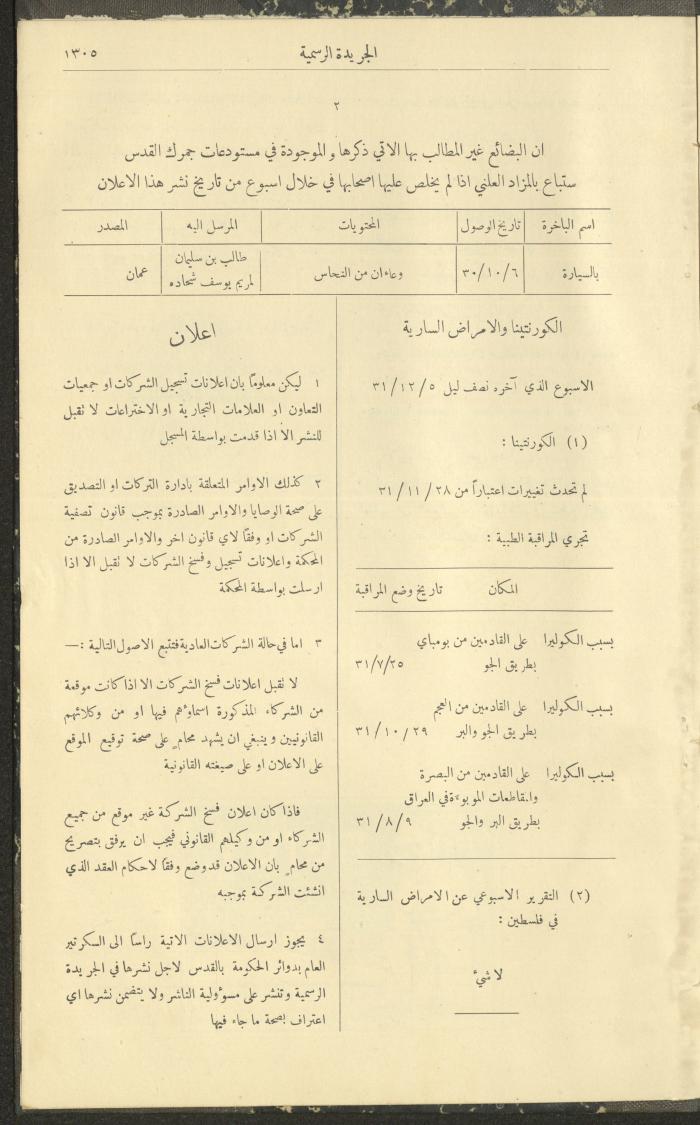 الجريدة الرسمية ١٣٠٥
٢
ان البضائع غير المطالب بها الاتي ذكرها والموجودة في مستودعات جمرك القدس
ستباع بالمزاد العلني اذا لم يخلص عليها اصحابها في خلال اسبوع من تاريخ نشر هذا الاعلان
اسم الباخرة تاريخ الوصول المحتويات المرسل اليه المصدر
بالسيارة ٣٠/١٠/٦ وعاءان من النحاس طالب بن سليمان عمان
لمريم يوسف شحاده
الكورنتينا والامراض السارية
الاسبوع الذي آخره نصف ليل ٣١/١٢/٥
(١) الكورنتينا :
لم تحدث تغييرات اعتباراً من ٣١/١١/٢٨
تجري المراقبة الطبية :
المكان تاريخ وضع المراقبة
بسبب الكوليرا على القادمين من بومباي
بطريق الجو ٣١/٧/٢٥
بسبب الكوليرا على القادمين من العجم
بطريق الجو والبر ٣١/١٠/٢٩
بسبب الكوليرا على القادمين من البصرة
والمقاطعات الموبوءة في العراق
بطريق البر والجو ٣١/٨/٩
(٢) التقرير الاسبوعي عن الامراض السارية
في فلسطين :
لا شيء
اعلان
١ ليكن معلوماً بان اعلانات تسجيل الشركات او جمعيات
التعاون او العلامات التجارية او الاختراعات لا تقبل
للنشر الا اذا قدمت بواسطة المسجل
٢ كذلك الاوامر المتعلقة بادارة التركات او التصديق
على صحة الوصايا والاوامر الصادرة بموجب قانون تصفية
الشركات او وفقاً لاي قانون اخر والاوامر الصادرة من
المحكمة واعلانات تسجيل وفسخ الشركات لا تقبل الا اذا
ارسلت بواسطة المحكمة
٣ اما في حالة الشركات العادية فتتبع الاصول التالية :—
لا تقبل اعلانات فسخ الشركات الا اذا كانت موقعة
من الشركاء المذكورة اسماؤهم فيها او من وكلائهم
القانونيين وينبغي ان يشهد محامٍ على صحة توقيع الموقع
على الاعلان او على صيغته القانونية
فاذا كان اعلان فسخ الشركة غير موقع من جميع
الشركاء او من وكيلهم القانوني فيجب ان يرفق بتصريح
من محامٍ بان الاعلان قد وضع وفقاً لاحكام العقد الذي
انشئت الشركة بموجبه
٤ يجوز ارسال الاعلانات الاتية راساً الى السكرتير
العام بدوائر الحكومة بالقدس لاجل نشرها في الجريدة
الرسمية وتنشر على مسؤولية الناشر ولا يتضمن نشرها اي
اعتراف بصحة ما جاء فيها